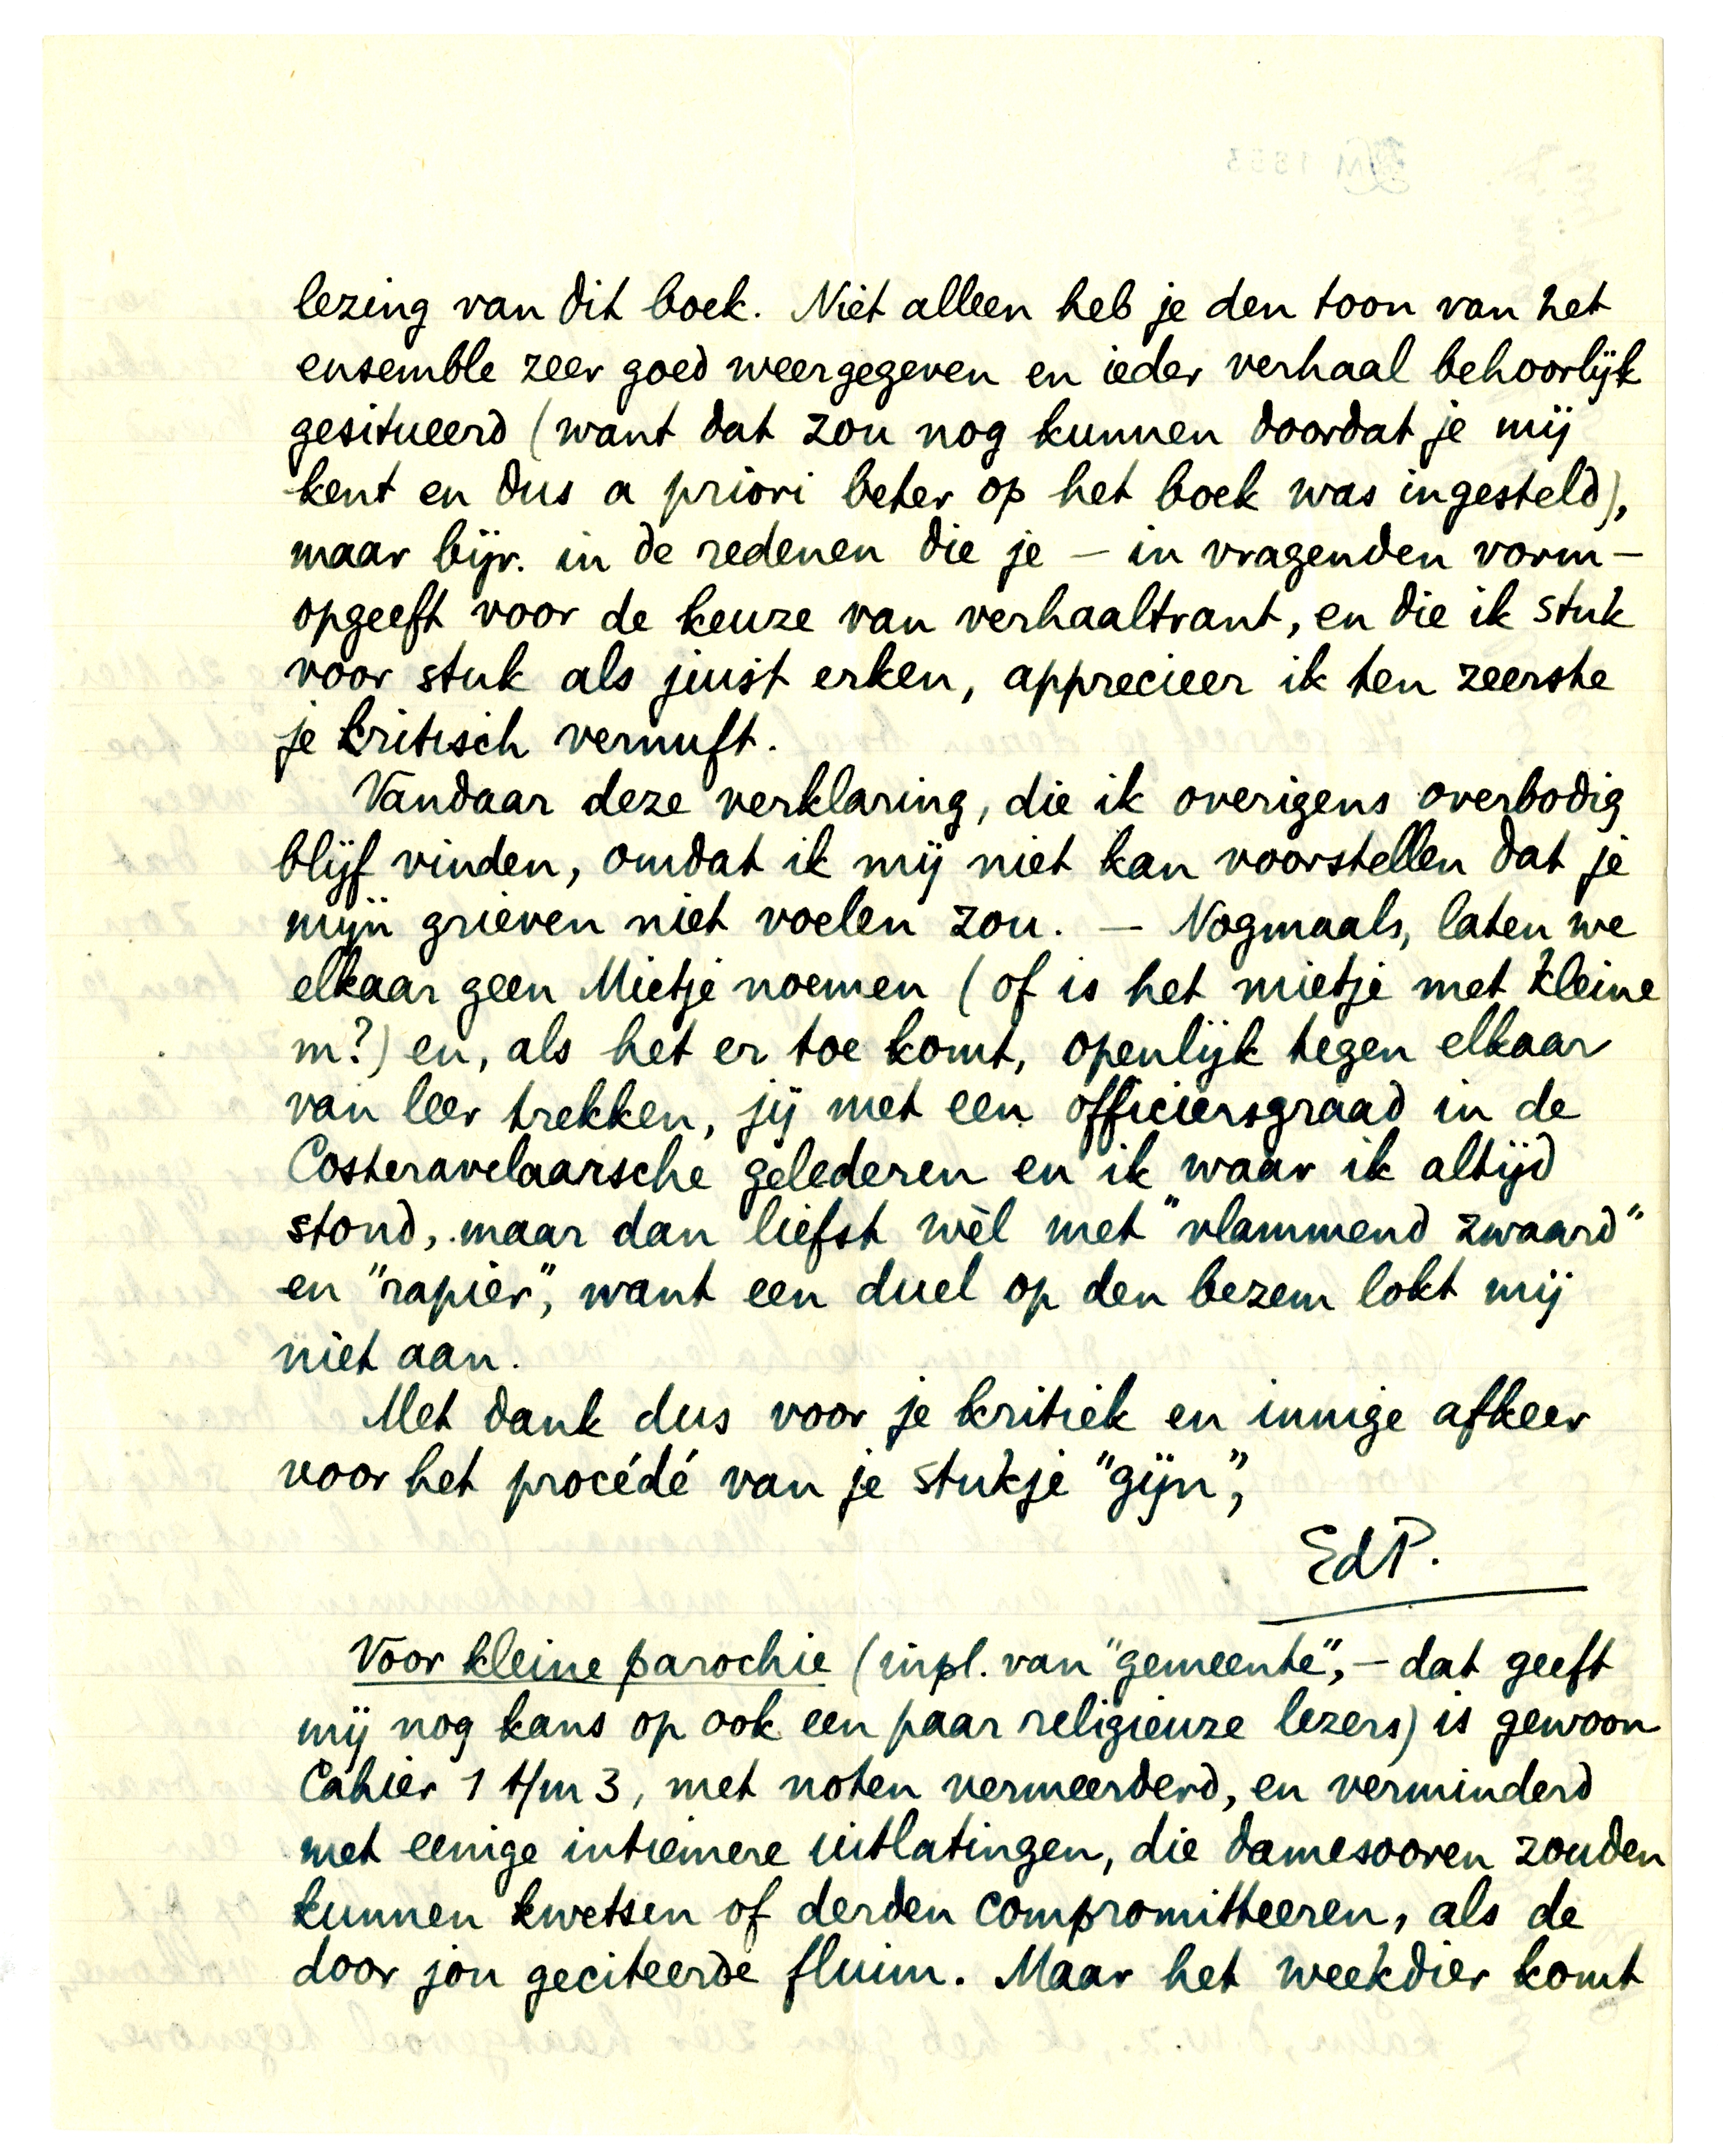 lezing van dit boek. Niet alleen heb je den toon van het
ensemble zeer goed weergegeven en ieder verhaal behoorlijk
gesitueerd (want dat zou nog kunnen doordat je mij
kent en dus a priori beter op het boek was ingesteld),
maar bijv. in de redenen die je – in vragenden vorm –
opgeeft voor de keuze van verhaaltrant, en die ik stuk
voor stuk als juist erken, apprecieer ik ten zeerste
je kritisch vernuft.
Vandaar deze verklaring, die ik overigens overbodig
blijf vinden, omdat ik mij niet kan voorstellen dat je
mijn grieven niet voelen zou. — Nogmaals, laten we
elkaar geen Mietje noemen (of is het mietje met kleine
m?) en, als het er toe komt, openlijk tegen elkaar
van leer trekken, jij met een officiersgraad in de
Costeravelaarsche gelederen en ik waar ik altijd
stond, maar dan liefst wèl met "vlammend zwaard"
en "rapier", want een duel op den bezem lokt mij
niet aan.
Met dank dus voor je kritiek en innige afkeer
voor het procédé van je stukje "gijn",
EdP.
Voor kleine parochie (inpl. van "gemeente", – dat geeft
mij nog kans op ook een paar religieuze lezers) is gewoon
Cahier 1 t/m 3, met noten vermeerderd, en verminderd
met eenige intiemere uitlatingen, die damesooren zouden
kunnen kwetsen of derden compromitteeren, als de
door jou geciteerde fluim. Maar het weekdier komt